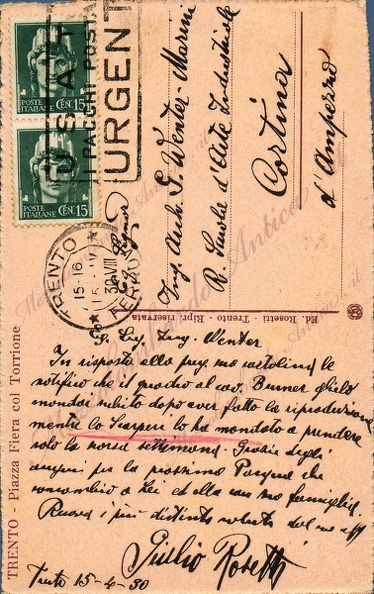 POSTE ITALIANE CEN. 15
POSTE ITALIANE CEN. 15
USATE
I PACCHI POST.
URGENTI
TRENTO
15-16
15. IV
FERROVIA
Ing. Arch. G. Wenter-Marini
R. Scuola d'Arte Industriale
Cortina
d'Ampezzo
Ed. Rosetti - Trento - Ripr. riservata
TRENTO - Piazza Fiera col Torrione
E. Sig. Ing. Wenter
In risposta alla preg. sua cartolina le
notifico che il quadro al cav. Burner glielo
mandai subito dopo aver fatto la riproduzione
mentre lo Scarperi lo ha mandato a prendere
solo la scorsa settimana. Grazie degli
auguri per la prossima Pasqua che
contraccambio a Lei ed alla sua famiglia.
i più distinti saluti dal
Giulio Rosetti
Trento 15-4-30